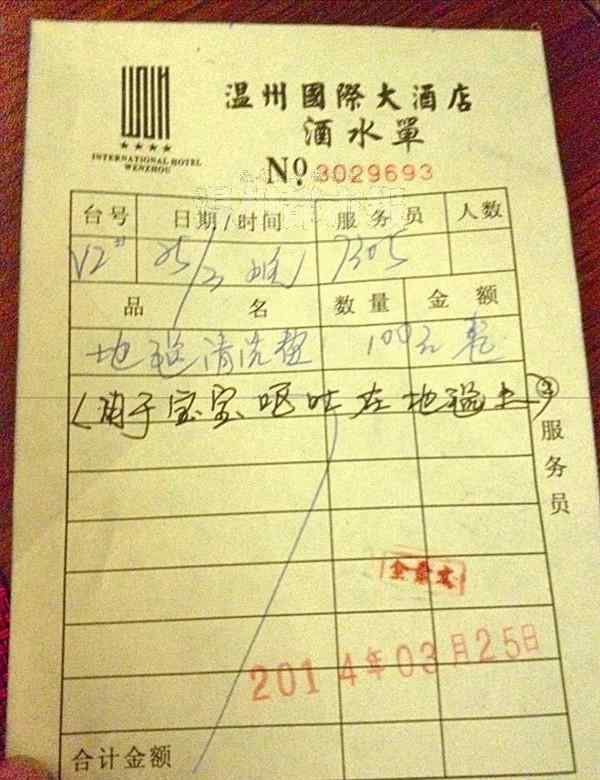 温州國際大酒店
酒水單
INTERNATIONAL HOTEL
WENZHOU
Nº 3029693
台号 日期/时间 服务员 人数
V2# 25/3 7305
品名 数量 金额
地毯清洗费 100元整
(用于宝宝呕吐在地毯上)
②服务员
2014年03月25日
合计金额